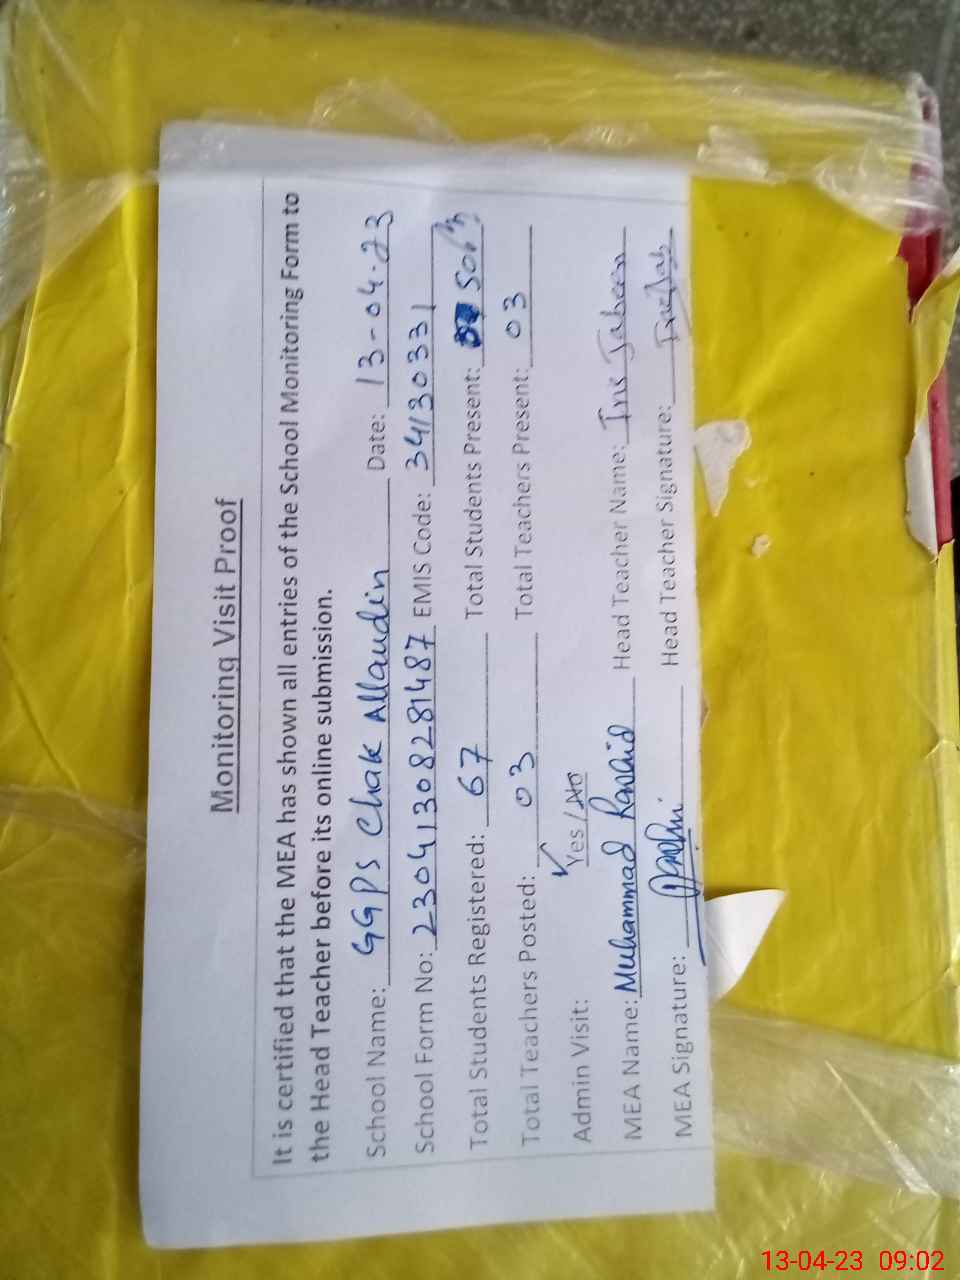 Monitoring Visit Proof
It is certified that the MEA has shown all entries of the School Monitoring Form to
the Head Teacher before its online submission.
School Name: GGPS Chak Allaudin Date: 13-04-23
School Form No: 23041308281487 EMIS Code: 34130331
Total Students Registered: 67 Total Students Present: 50
Total Teachers Posted: 03 Total Teachers Present: 03
Admin Visit: Yes / No
MEA Name: Muhammad Rashid Head Teacher Name: Jabeen
MEA Signature: Head Teacher Signature:
13-04-23 09:02